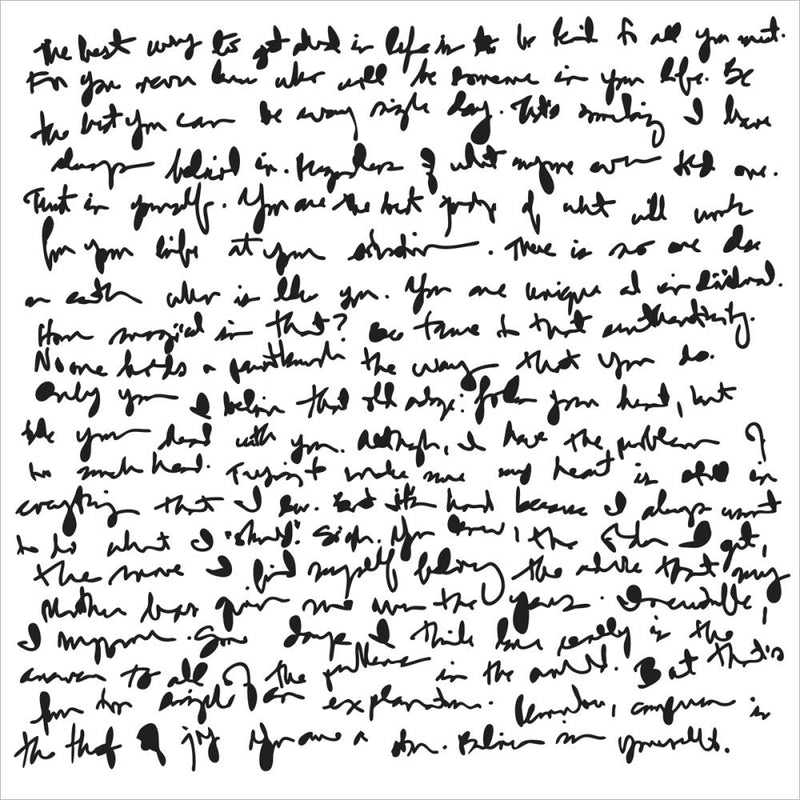 The best way to get ahead in life is to be kind to all you meet.
For you never know who will be someone in your life. Be
the best you can be every single day. That's something I have
always believed in. Regardless of what anyone ever told me.
Trust in yourself. You are the best judge of what will work
for you life at your. There is no one else
on earth who is like you. You are unique at individual.
How magical is that? be true to that authenticity.
No one holds a paintbrush the way that you do.
Only you I believe that old adage: follow your heart, but
take your head with you. Although, I have the problem of
too much head. Trying to make sure my heart is also in
everything that I do. But it's hard because I always want
to do what I "should". Sigh. You know, the older I get,
the more I find myself following the advice that my
Mother has given me over the years. Incredible,
I suppose. Some days I think love really is the
answer to all of the problems in the world. But that's
far too simple of an explanation. Comparison is
the thief of joy You are a star. Believe in yourself.